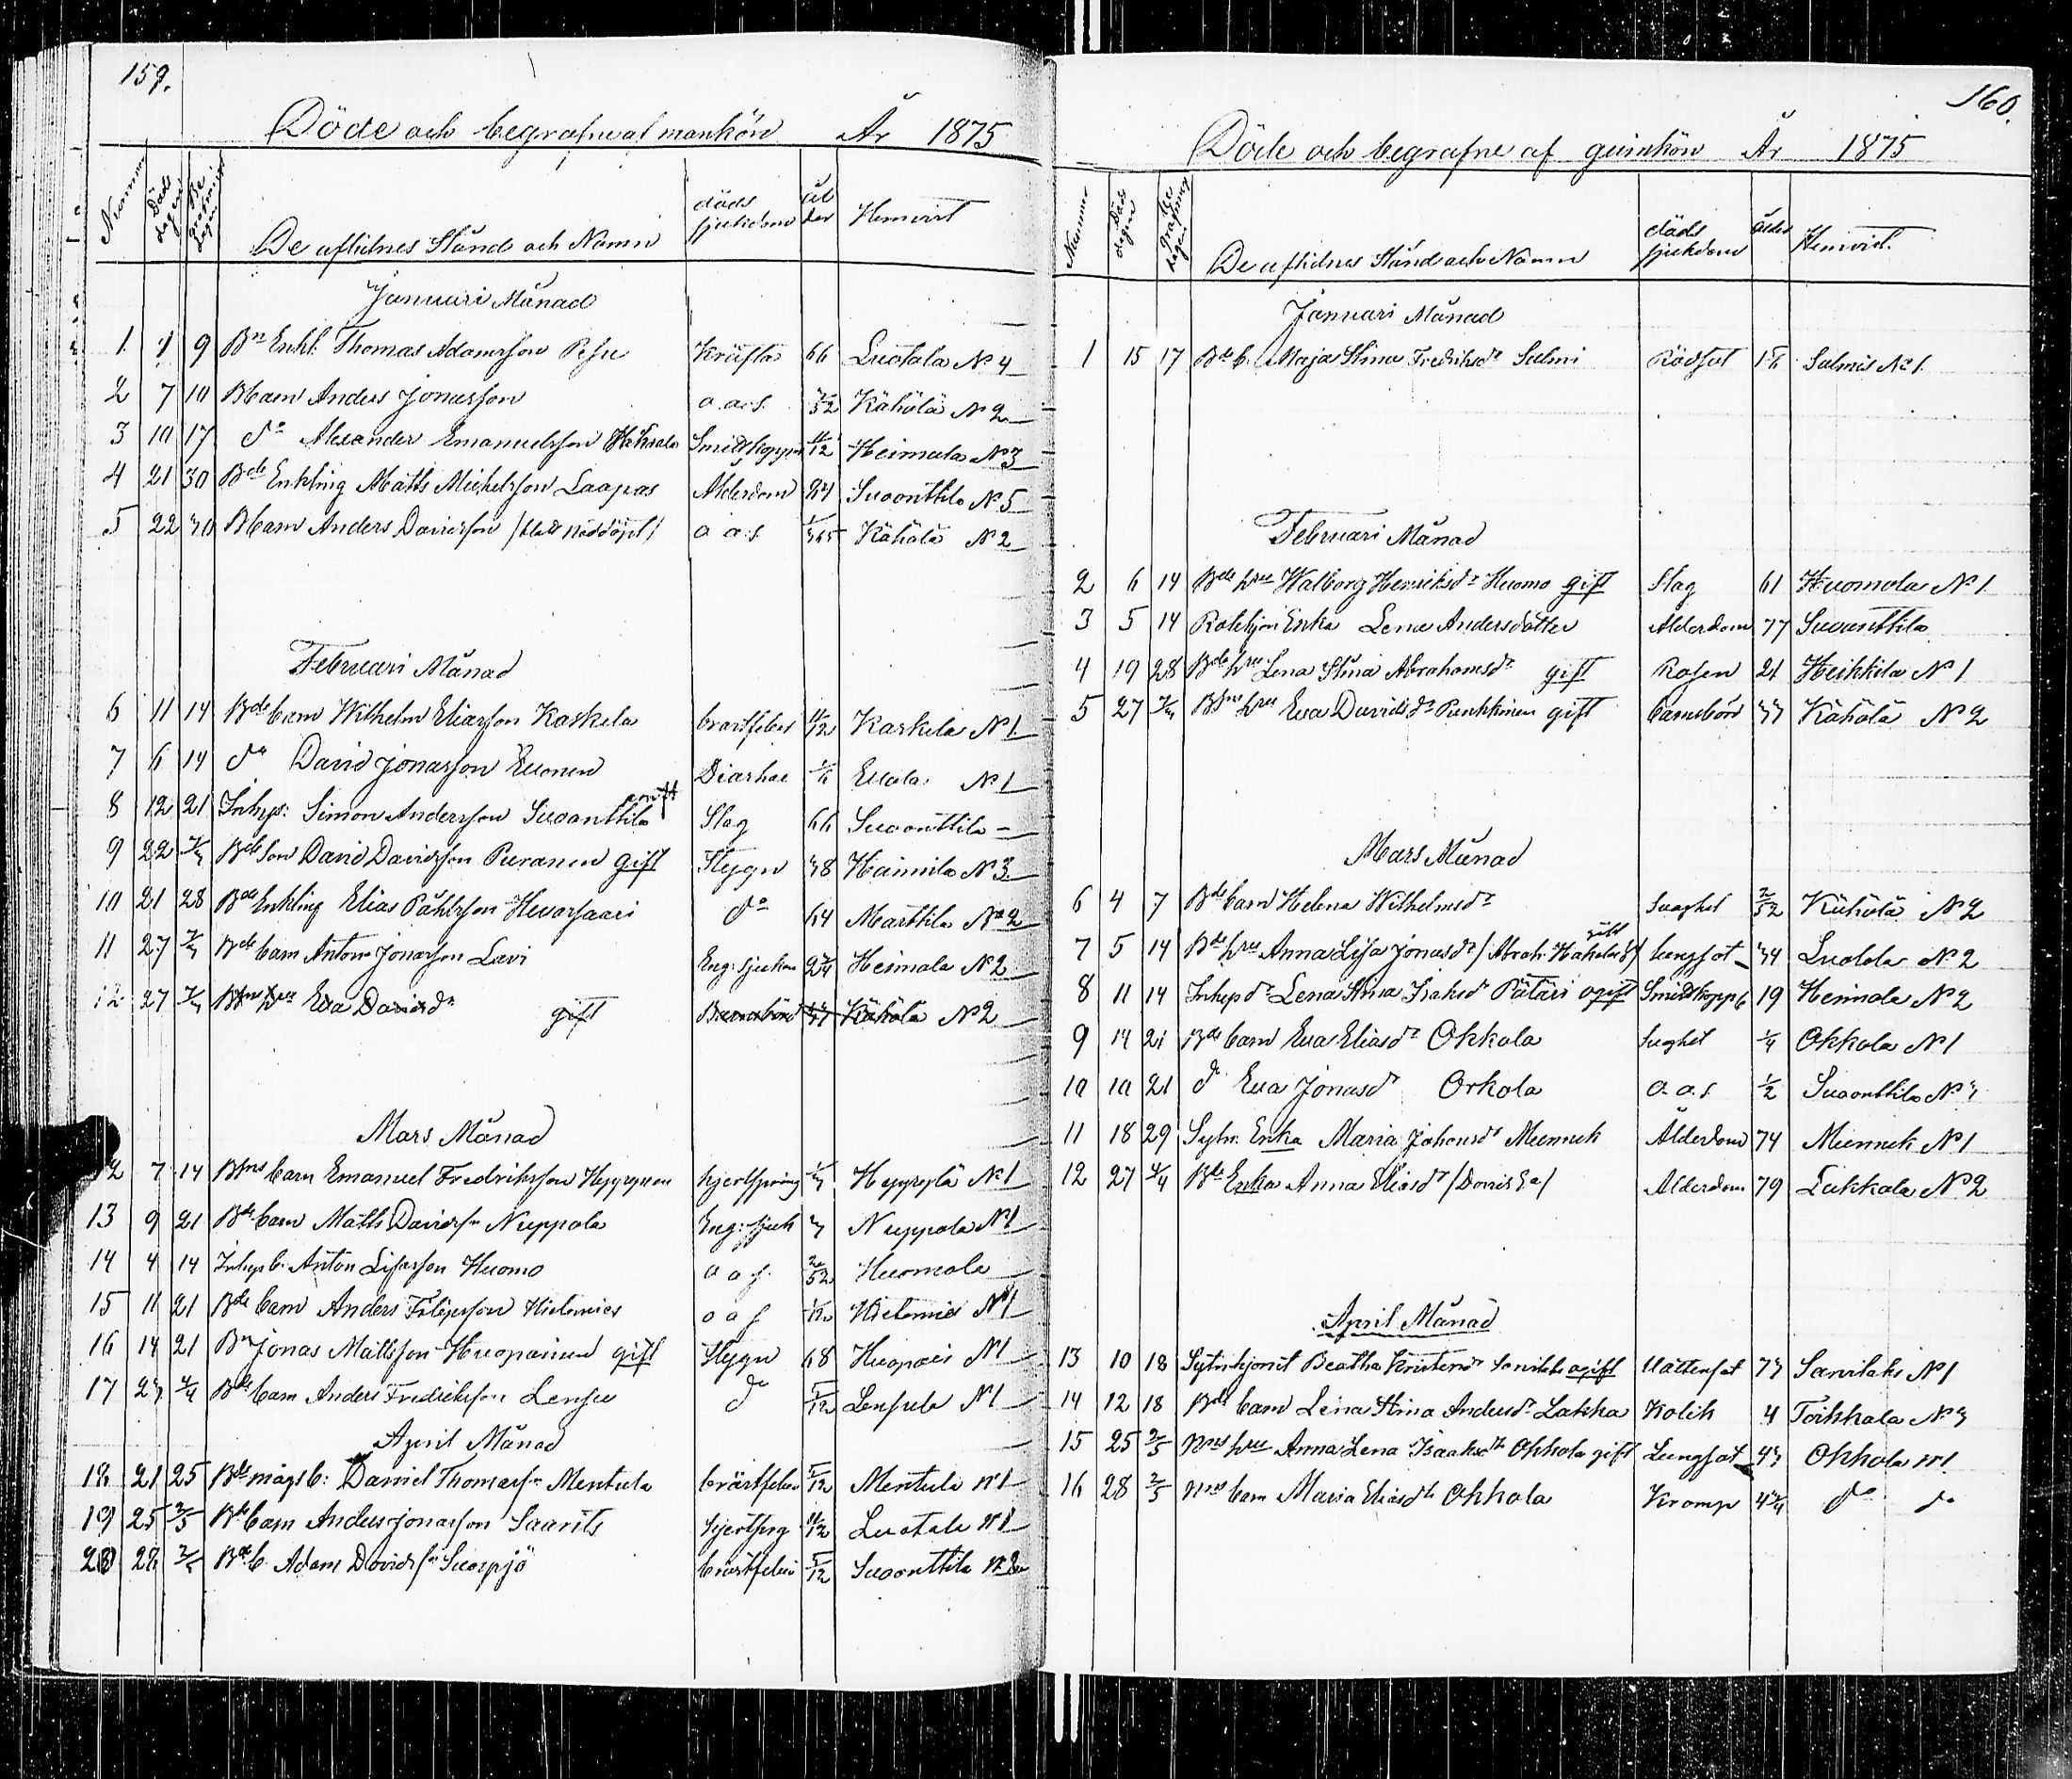 159.
Döde och begrafne af mankön År 1875
Nummer Döds dagen Be grafnings dagen De aflidnes Stånd och Namn döds sjukdom ål der Hemvist
Januari Månad
1. 1 9 Bn Enkl. Thomas Adamsson Pesu Kräfta 66 Luotola No 4
2 7 10 Bbarn Anders Jonasson o.a.s. 3/52 Kähölä No 2
3 10 17 do Alexander Emanuelsson Smittkoppor 11/12 Heimala No 3
4 21 30 Bde Enkling Matts Michelsson Laapas Ålderdom Suoanttila No 5
5 22 30 Bbarn Anders Davidsson / nöddöpt / o a.s 1/365 Kähölä No 2
Februari Månad
6 11 14 Bde barn Wilhelm Eliasson Kaskela brästfeber 11/12 Kaskela No 1
7 6 14 do David Jonasson Diarhae 1/6 No 1
8 12 21 Inhys: Simon Andersson Suoanttila Slag 66 Suoanttila
9 22 7/3 Bde Son David Davidsson Puranen gift Stygn 38 Haimila No 3
10 21 28 Bde Enkling Elias Påhlsson Hevossaari do 64 Marttila No 2
11 27 7/3 Bde barn Anton Jonasson Lavi Eng: sjukan 2 3/4 Heimala No 2
12 27 7/3 Eva Davidsdr gift Barnsbörd 37 Kähölä No 2
Mars Månad
12 7 14 Bfns barn Emanuel Fredriksson Hyyrynen hjertspring 1/3 Hyyrylä No 1
13 9 21 Bde barn Matts Davidsn Nuppola Eng: sjuk 3 Nuppola No 1
14 4 14 Inhys b. Anton Lisasson Huomo o a s. 2/52 Huomola
15 11 21 Bde barn Anders Filipsson Hietamies o a s 1/12 Hietamies No 1
16 14 21 Bn Jonas Mattsson Huopainen gift Stygn 68 Huopais No 1
17 23 4/4 Bde barn Anders Fredriksson Lensu do 5/12 Lensula No 1
April Månad
18 21 25 Bde mågs b: Daniel Thomassn Mentula brästfeber 5/12 Mentula No 1
19 25 2/5 Bde barn Anders Jonasson Saarits hjertsprg 11/12 Luotola No 1
20 28 2/5 Bde b. Adam Davidsn Suorpjö brästfeber 5/12 Suoanttila No 2
160.
Döde och begrafne af qvinkön År 1875
Nummer Döds dagen Be grafnings dagen De aflidnes Stånd och Namn döds sjukdom ålder Hemvist.
Januari Månad
1 15 17 Bde b. Maja Stina Fredriksdr Salmi Rödsot 1 5/6 Salmis No 1.
Februari Månad
2 6 14 Bde hru Walborg Henriksdr Huomo gift Slag 61 Huomola No 1
3 5 14 Rotehjon Enka Lena Andersdotter Ålderdom 77 Suoanttila
4 19 28 Bde hru Lena Stina Abrahamsdr gift Rosen 21 Heikkilä No 1
5 27 7/3 Bfns hru Eva Davidsdr Penkkinen gift barnsbörd 37 Kähölä No 2
Mars Månad
6 4 7 Bde barn Helena Wilhelmsdr Svaghet 2/52 Kähölä No 2
7 5 14 Bde hru Anna Lisa Jonasdr / Abrah: / gift lungsot 34 Luotola No 2
8 11 14 Inhysdr Lena Stina Isaksdr Pätäri ogift Smittkopp 19 Heimala No 2
9 14 21 Bde barn Eva Eliasdr Okkola Svaghet 1/4 Okkola No 1
10 10 21 do Eva Jonasdr Orkola o. a. s. 1/2 Suoanttila No 3
11 18 29 Sytn. Enka Maria Johansdr Munnuk Ålderdom 74 Munnuk No 1
12 27 4/4 Bde Enka Anna Eliasdr Ålderdom 79 Lakkala No 2
April Månad
13 10 18 Sytnhjonet Beatha Kristersdr ogift Vattensot 73 Sarvilaks No 1
14 12 18 Bde barn Lena Stina Andersdr Lakka Kolik 4 Toikkala No 3
15 25 2/5 Bns hru Anna Lena Isaaksdr Okkola gift Lungsot 43 Okkola No 1.
16 28 2/5 Bns barn Maria Eliasdr Okkola Kromp 4 3/4 do do